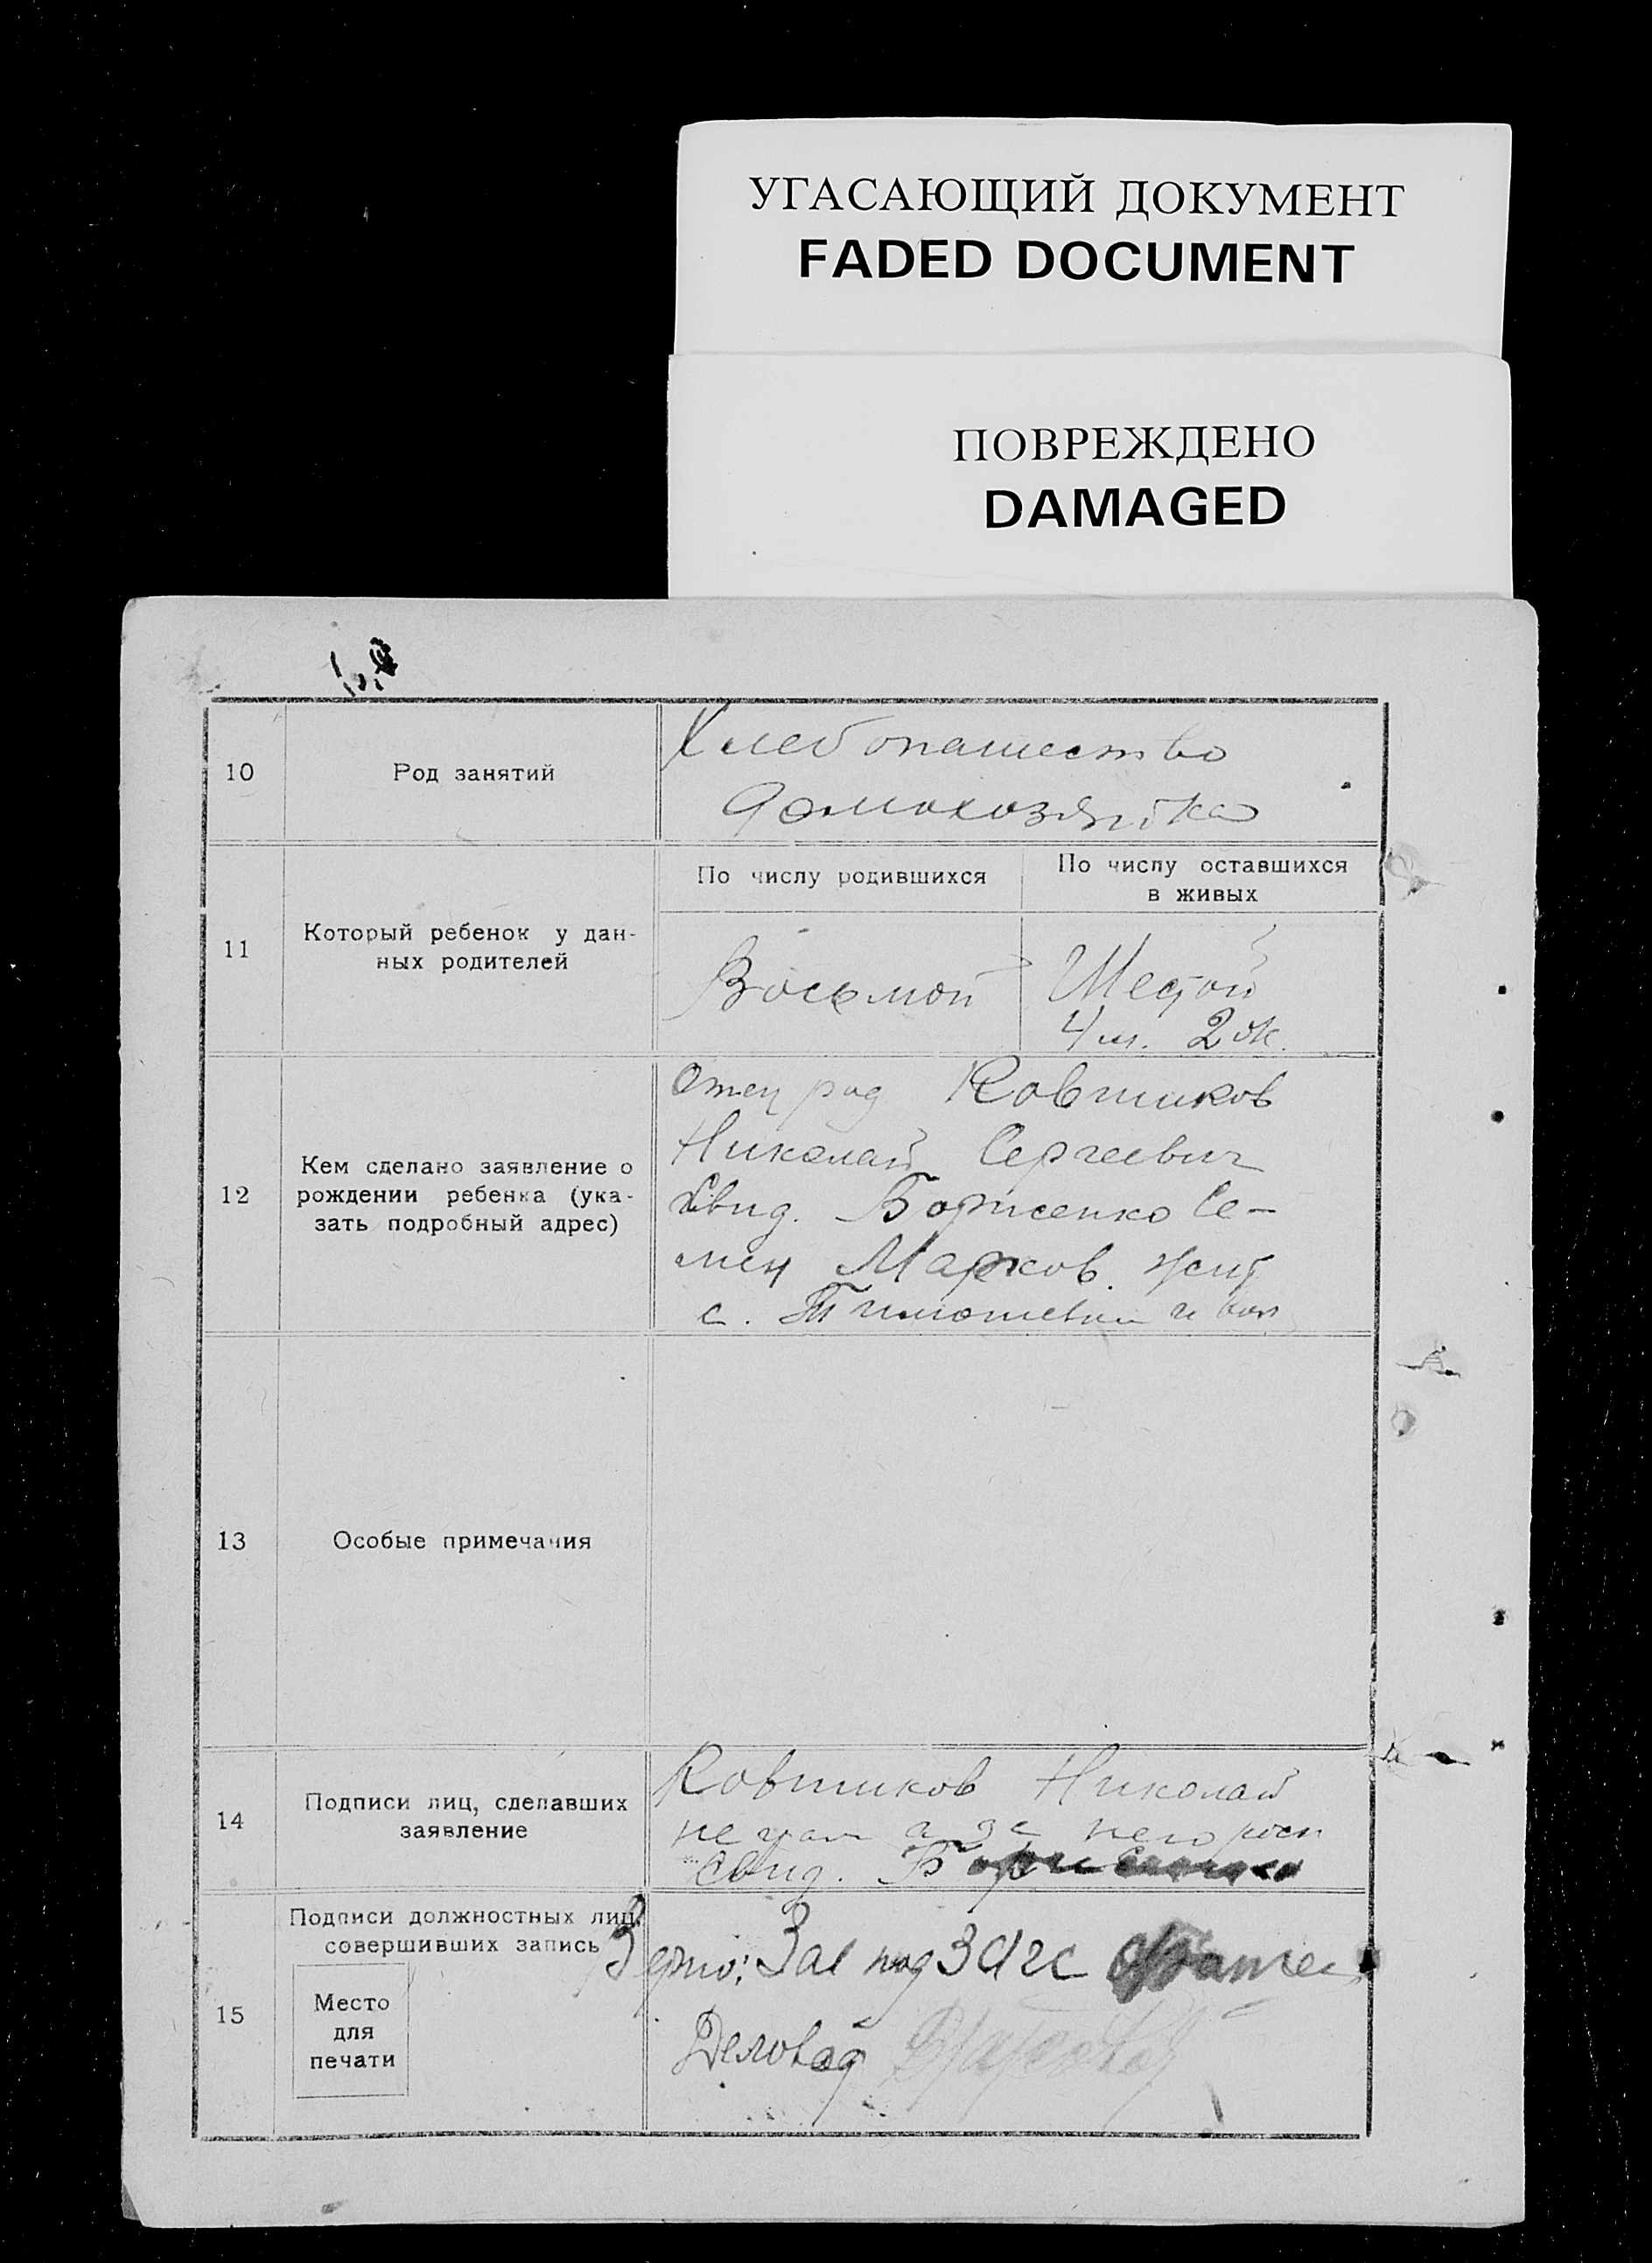 УГАСАЮЩИЙ ДОКУМЕНТ
FADED DOCUMENT
ПОВРЕЖДЕНО
DAMAGED
10
Род занятий
Хлебопашество
домохозяйка
11
Который ребенок у дан-
ных родителей
По числу родившихся
По числу оставшихся
в живых
Восьмой
Шестой
4 м. 2 ж.
12
Кем сделано заявление о
рождении ребенка (ука-
зать подробный адрес)
Отец род Ковшиков
Николай Сергеевич
Свид. Борисенко Се-
мен Марков. жит
с.
13
Особые примечания
14
Подписи лиц, сделавших
заявление
Ковшиков Николай
негра а за него росп
свид. Борисенко
15
Подписи должностных лиц,
совершивших запись
Место
для
печати
Верно: Зав под ЗАГС
Деловод